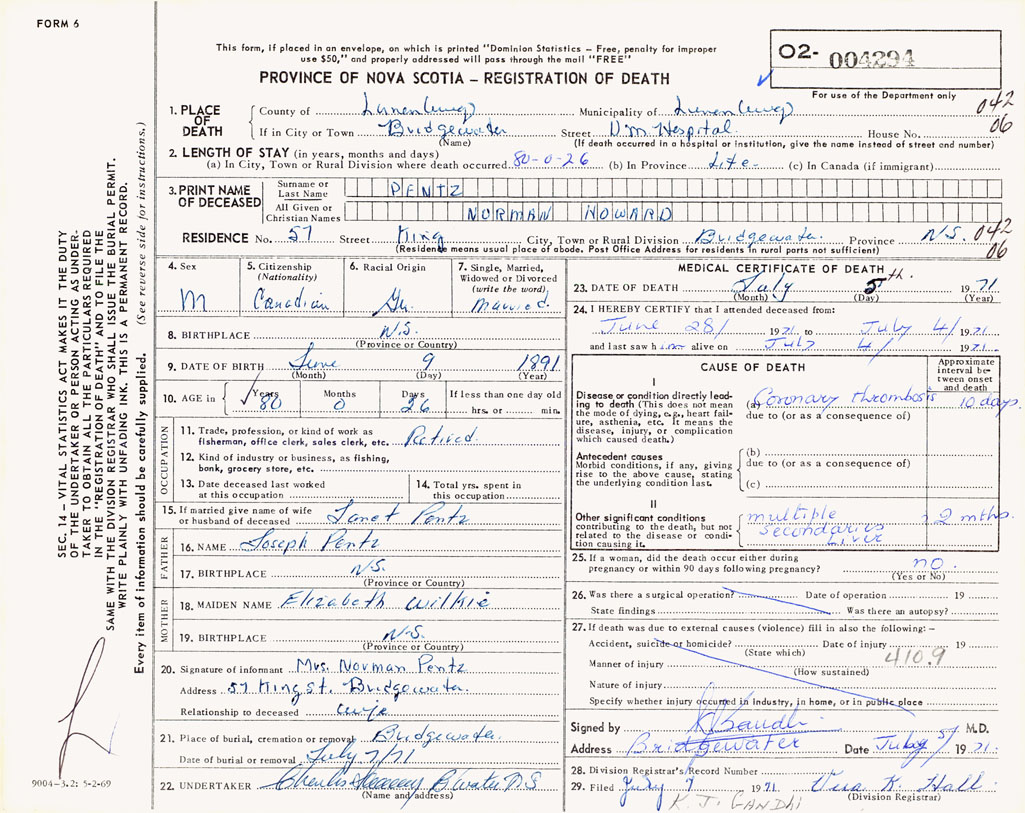 FORM 6
This form, if placed in an envelope, on which is printed "Dominion Statistics – Free, penalty for improper
use $50," and properly addressed will pass through the mail "FREE"
PROVINCE OF NOVA SCOTIA – REGISTRATION OF DEATH
O2- 004294
For use of the Department only
1. PLACE OF DEATH
County of Lunenburg Municipality of Lunenburg 042
If in City or Town Bridgewater Street D.M. Hospital House No. 06
(Name) (If death occurred in a hospital or institution, give the name instead of street and number)
2. LENGTH OF STAY (in years, months and days)
(a) In City, Town or Rural Division where death occurred 80-0-26 (b) In Province Life (c) In Canada (if immigrant)
3. PRINT NAME OF DECEASED
Surname or Last Name PENTZ
All Given or Christian Names NORMAN HOWARD
RESIDENCE No. 57 Street King City, Town or Rural Division Bridgewater Province N.S. 042
(Residence means usual place of abode. Post Office Address for residents in rural parts not sufficient) 06
4. Sex
M
5. Citizenship (Nationality)
Canadian
6. Racial Origin
Gr.
7. Single, Married, Widowed or Divorced (write the word)
Married.
8. BIRTHPLACE N.S.
(Province or Country)
9. DATE OF BIRTH June 9 1891
(Month) (Day) (Year)
10. AGE in Years Months Days If less than one day old
80 0 26 hrs. or min.
OCCUPATION
11. Trade, profession, or kind of work as
fisherman, office clerk, sales clerk, etc. Retired.
12. Kind of industry or business, as fishing,
bank, grocery store, etc.
13. Date deceased last worked
at this occupation
14. Total yrs. spent in
this occupation
15. If married give name of wife
or husband of deceased Janet Pentz
FATHER
16. NAME Joseph Pentz
17. BIRTHPLACE N.S.
(Province or Country)
MOTHER
18. MAIDEN NAME Elizabeth Wilkie
19. BIRTHPLACE N.S.
(Province or Country)
20. Signature of informant Mrs. Norman Pentz
Address 57 King St. Bridgewater.
Relationship to deceased wife
21. Place of burial, cremation or removal Bridgewater.
Date of burial or removal July 7/71
22. UNDERTAKER Charles B'water N.S
(Name and address)
MEDICAL CERTIFICATE OF DEATH
23. DATE OF DEATH July 5th. 1971
(Month) (Day) (Year)
24. I HEREBY CERTIFY that I attended deceased from:
June 28/ 1971 to July 4/ 1971
and last saw him alive on July 4/ 1971.
CAUSE OF DEATH
Approximate interval between onset and death
I
Disease or condition directly leading
to death (This does not mean
the mode of dying, e.g., heart failure,
asthenia, etc. It means the
disease, injury, or complication
which caused death.)
(a) Coronary thrombosis 10 days.
due to (or as a consequence of)
Antecedent causes
Morbid conditions, if any, giving
rise to the above cause, stating
the underlying condition last.
(b)
due to (or as a consequence of)
(c)
II
Other significant conditions
contributing to the death, but not
related to the disease or condition
causing it.
multiple
secondaries
liver
2 mths.
25. If a woman, did the death occur either during
pregnancy or within 90 days following pregnancy? no.
(Yes or No)
26. Was there a surgical operation? Date of operation 19
State findings Was there an autopsy?
27. If death was due to external causes (violence) fill in also the following: –
Accident, suicide or homicide? Date of injury 19
(State which) 410.9
Manner of injury
(How sustained)
Nature of injury
Specify whether injury occurred in industry, in home, or in public place
Signed by K Gandhi M.D.
Address Bridgewater Date July 5/ 1971.
28. Division Registrar's Record Number
29. Filed July 7 1971 Vera K. Hall
(Division Registrar)
K. J. GANDHI
SEC. 14 – VITAL STATISTICS ACT MAKES IT THE DUTY
OF THE UNDERTAKER OR PERSON ACTING AS UNDER-
TAKER TO OBTAIN ALL THE PARTICULARS REQUIRED
IN THE "REGISTRATION OF DEATH" AND TO FILE THE
SAME WITH THE DIVISION REGISTRAR WHO SHALL ISSUE THE BURIAL PERMIT.
WRITE PLAINLY WITH UNFADING INK. THIS IS A PERMANENT RECORD.
Every item of information should be carefully supplied. (See reverse side for instructions.)
9004–3.2: 5-2-69